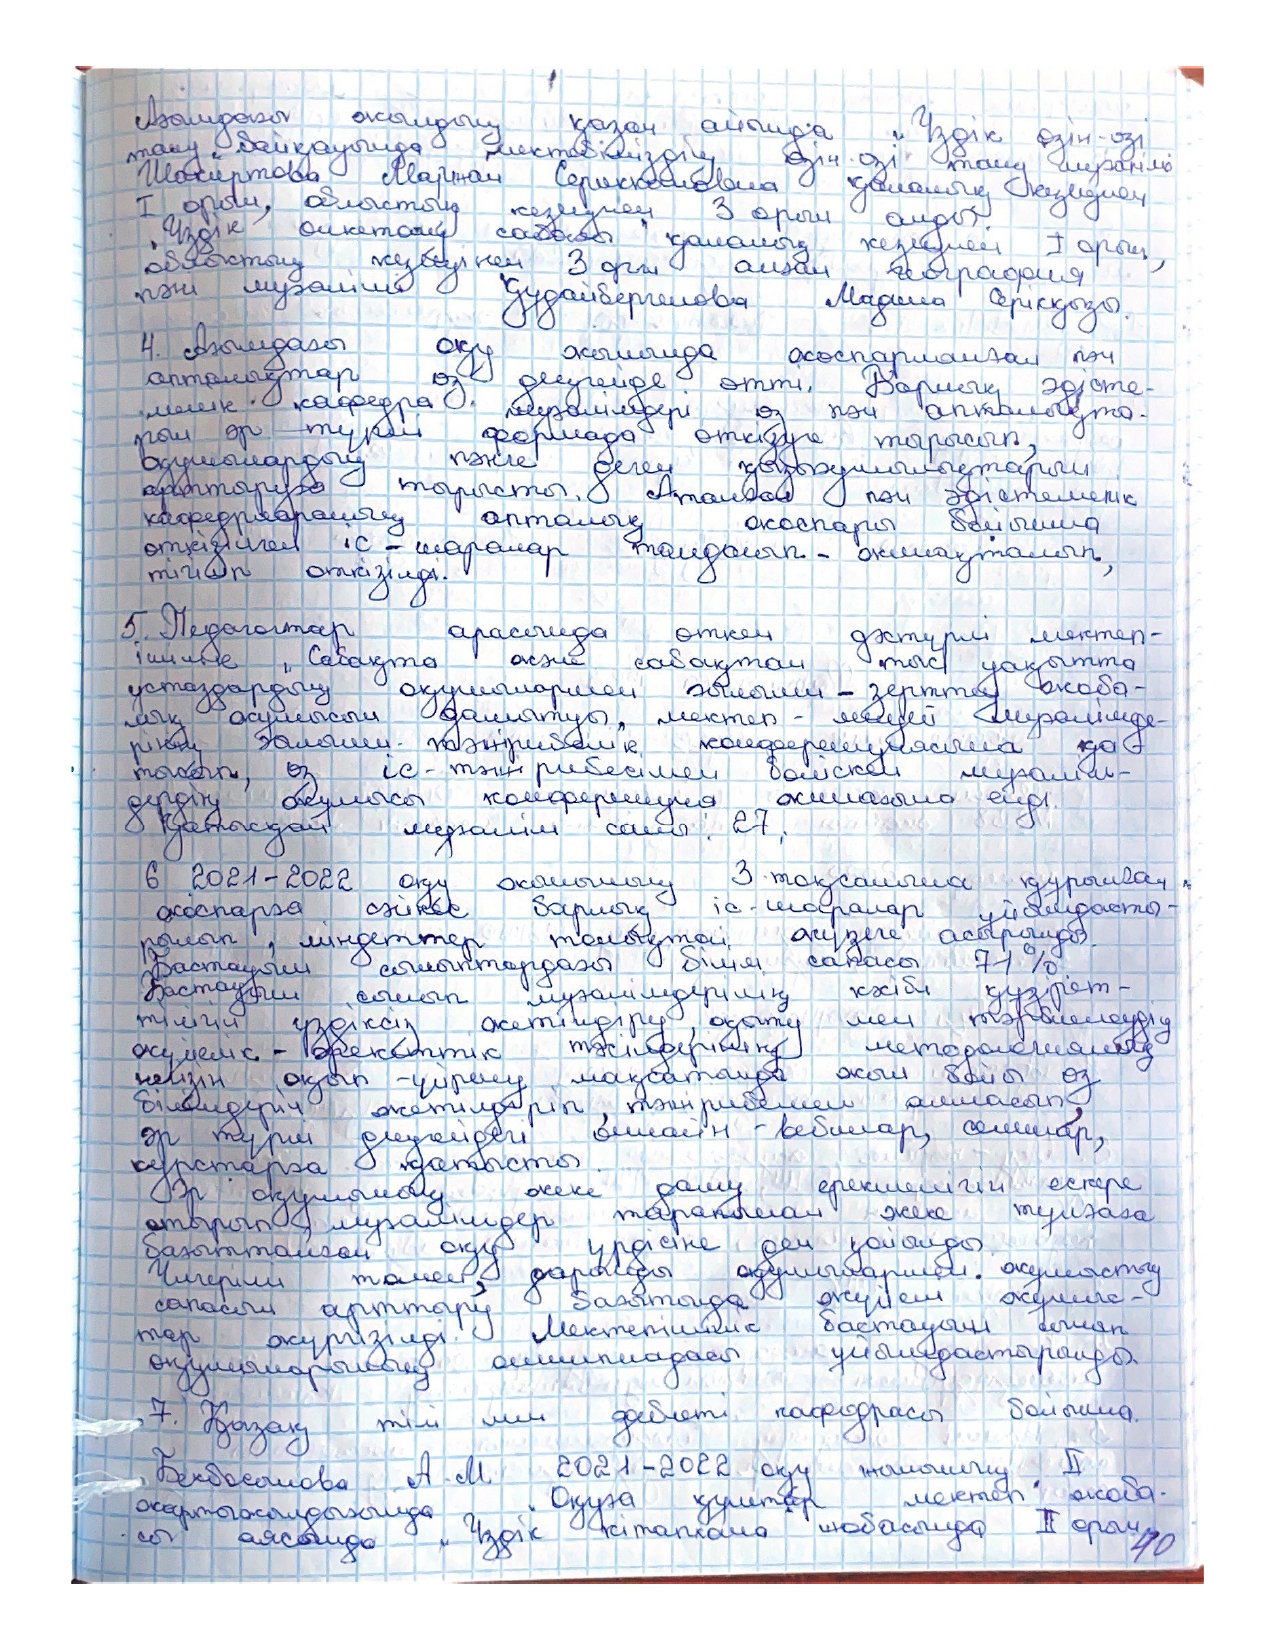 Ағымдағы жылдың қазан айында „Үздік өзін-өзі
тану" байқауында мектебіміздің өзін-өзі тану мұғалімі
Шакиртова Маржан Сериккановна қалалық кезеңнен
I орын, облыстық кезеңнен 3 орын алды.
„Үздік өлкетану сабағы" қалалық кезеңнен I орын,
облыстық кезеңінен 3 орын алған география
пән мұғалімі Құдайбергенова Мадина Серікқызы.
4. Ағымдағы оқу жылында жоспарланған пән
апталықтар өз деңгейде өтті. Барлық әдісте-
мелік кафедра мұғалімдері өз пән апталықта-
рын әр түрлі формада өткізуге тырысып,
оқушылардың пәнге деген қызығушылықтарын
арттыруға тырысты. Аталған пән әдістемелік
кафедраларының апталық жоспары бойынша
өткізілген іс-шаралар талданып-жинақталып,
тігіліп өткізілді.
5. Педагогтар арасында өткен дәстүрлі мектеп-
ішілік „Сабақта және сабақтан тыс уақытта
ұстаздардың оқушылармен ғылыми-зерттеу жоба-
лық жұмысын дамытуы" мектеп-лицей мұғалімде-
рінің ғылыми-тәжірибелік конференциясына қа-
тысып, өз іс-тәжірибесімен бөліскен мұғалім-
дердің жұмысы конференция жинағына енді.
Қатысқан мұғалім саны: 27.
6 2021-2022 оқу жылының 3 тоқсанына құрылған
жоспарға сәйкес барлық іс-шаралар ұйымдасты-
рылып, міндеттер толықтай жүзеге асырылды.
Бастауыш сыныптардағы білім сапасы 71%.
Бастауыш сынып мұғалімдерінің кәсіби құзірет-
тілігін үздіксіз жетілдіру, оқыту мен тәрбиелеудің
жүйелік-әрекеттік тәсілдерінің методологиялық
негізін оқып-үйрену мақсатында жыл бойы өз
білімдерін жетілдіріп, тәжірибемен алмасып,
әр түрлі деңгейдегі онлайн-вебинар, семинар,
курстарға қатысты.
Әр оқушының жеке даму ерекшелігін ескере
отырып, мұғалімдер тарапынан жеке тұлғаға
бағытталған оқу үрдісіне ден қойылды.
Үлгерімі төмен, дарынды оқушылармен жұмыстың
сапасын арттыру бағытында жүйелі жұмыс-
тар жүргізілді. Мектепішілік бастауыш сынып
оқушыларының олимпиадасы ұйымдастырылды.
7. Қазақ тілі мен әдебиеті кафедрасы бойынша.
Бекбосынова А.М 2021-2022 оқу жылының II
жартыжылдығында „Оқуға құштар мектеп" жоба-
сы аясында „Үздік кітапхана" жобасында II орын.
40